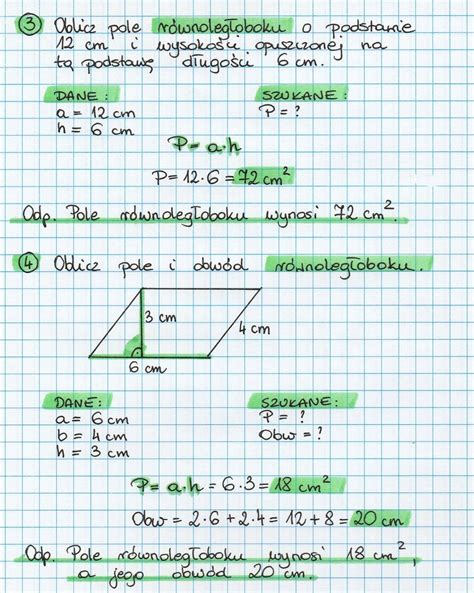 3 Oblicz pole równoległoboku o podstawie
12 cm i wysokości opuszczonej na
tą podstawę długości 6 cm.
DANE: SZUKANE:
a = 12 cm P = ?
h = 6 cm
P = a·h
P = 12·6 = 72 cm²
Odp. Pole równoległoboku wynosi 72 cm².
4 Oblicz pole i obwód równoległoboku.
3 cm
4 cm
6 cm
DANE: SZUKANE:
a = 6 cm P = ?
b = 4 cm Obw = ?
h = 3 cm
P = a·h = 6·3 = 18 cm²
Obw = 2·6 + 2·4 = 12 + 8 = 20 cm
Odp. Pole równoległoboku wynosi 18 cm²,
a jego obwód 20 cm.